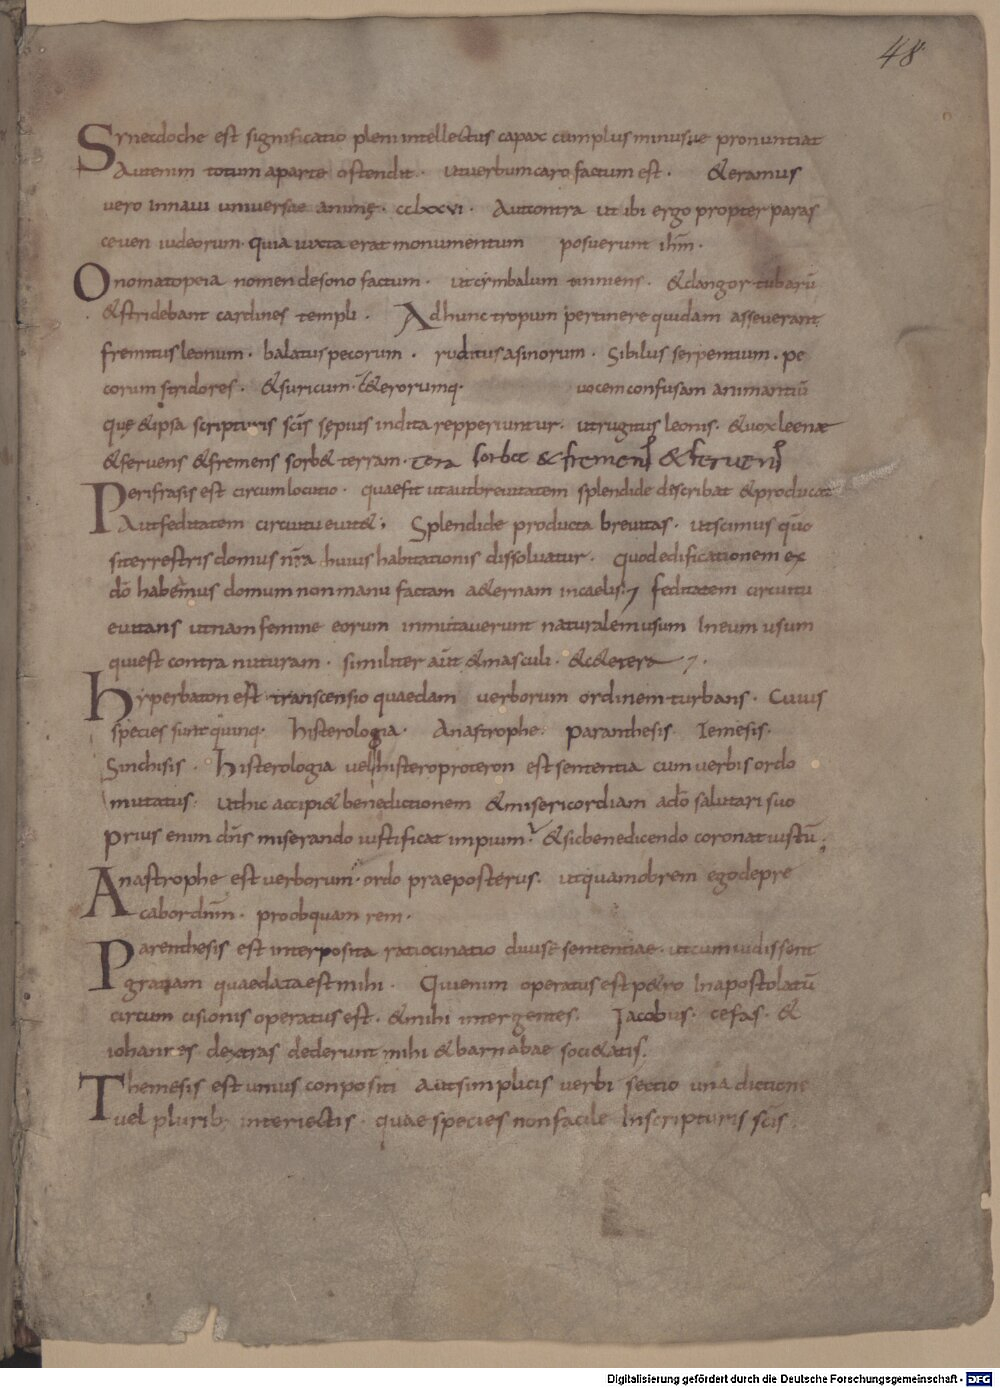 48
Synecdoche est significatio pleni intellectus capax cum plus minusve pronuntiat
Aut enim totum aparte ostendit · ut verbum caro factum est · & eramus
vero in navi universae animę · cclxxvi · Aut contra ut ibi ergo propter paras
ceuen iudeorum · quia iuxta erat monumentum posuerunt ihm̄ ·
Onomatopeia nomen de sono factum · ut cymbalum tinniens · & clangor tubarū
& stridebant cardines templi · Ad hunc tropum pertinere quidam asseverant
fremitus leonum · balatus pecorum · ruditus asinorum · sibilus serpentium · pe
corum stridores · & suricum · & &erorumq · vocem confusam animantiū
quę & ipsa scripturis scīs sępius indita repperiuntur · ut rugitus leonis · & vox leenae
& fervens & fremens sorb& terram · terra sorbet & fremens & fervens
Perifrasis est circumlocutio · quae fit ut aut brevitatem splendide describat & producat
Aut feditatem circuitu evit& ; Splendide producta brevitas · ut scimus quō
si terrestris domus nr̄a huius habitationis dissolvatur · quod edificationem ex
dō habemus domum non manu factam a&ernam in caelis ; feditatem circuitu
evitans ut nam femine eorum inmutaverunt naturalem usum In eum usum
qui est contra naturam · similiter aūt & masculi · & c&era ·
Hyperbaton est transcensio quaedam verborum ordinem turbans · Cuius
species sunt quinq · histerologia · Anastrophe · parenthesis · Temesis ·
Sinchisis · histerologia vel histeroproteron est sententia cum verbis ordo
mutatus · ut hic accipi& benedictionem & misericordiam a dō salutari suo
prius enim dn̄s miserando iustificat impium · & sic benedicendo coronat iustū ;
Anastrophe est verborum · ordo praeposterus · ut quamobrem ego depre
cabor dnm̄ · pro ob quam rem ·
Parenthesis est interposita ratiocinatio divise sententiae · ut cum vidissent
gratiam quae data est mihi · Qui enim operatus est p&ro In apostolatū
circumcisionis operatus est · & mihi inter gentes · Jacobus · cefas · &
iohannes dextras dederunt mihi & barnabae soci&atis ·
Themesis est unius conpositi aut simplicis verbi sectio una dictione
vel plurib; interiectis · quae species non facile In scripturis scīs
Digitalisierung gefördert durch die Deutsche Forschungsgemeinschaft - DFG